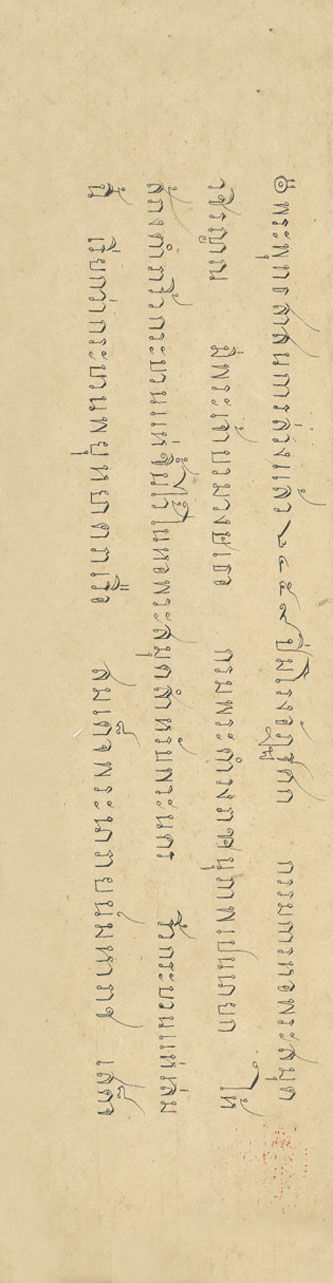 ๏ พระพุทธสาสนกาลล่วงแล้ว ๒๔๕๙ ปีมโรงอัฐศก กรรมการหอพระสมุด
วชิรญาณ มีพระเจ้าบรมวงษเธอ กรมพระดำรงราชานุภาพเปนนายก ได้
ริ้วกระบวนแห่นี้ไว้ในหอพระสมุดสำหรับพระนคร ริ้วกระบวนแห่เดิม
นี้ เรียกว่ากระบวนพยุหยาตราเรือ สมเด็จพระนารายน์มหาราช เสด็จ